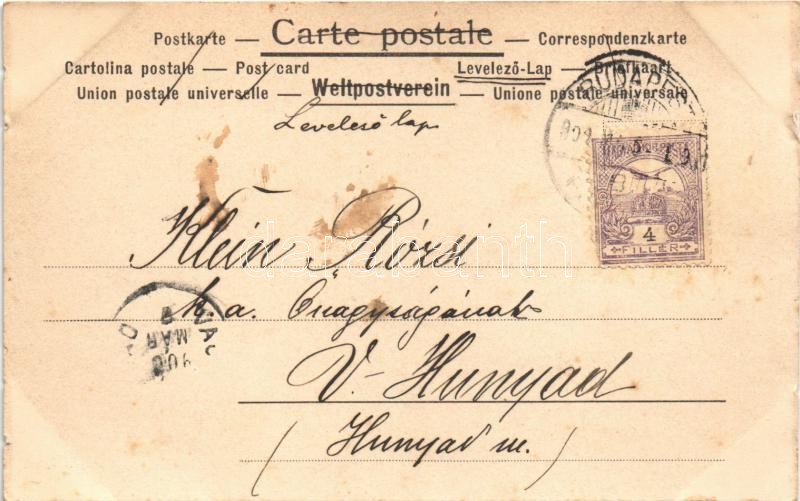 Postkarte — Carte postale — Correspondenzkarte
Cartolina postale — Post card Levelező-Lap — Briefkaart
Union postale universelle — Weltpostverein — Unione postale universale
Levelező lap
BUDAPEST
4
FILLÉR
Klein Rózsi
k. a. Őnagyságának
V- Hunyad
(Hunyad m.
MÁR